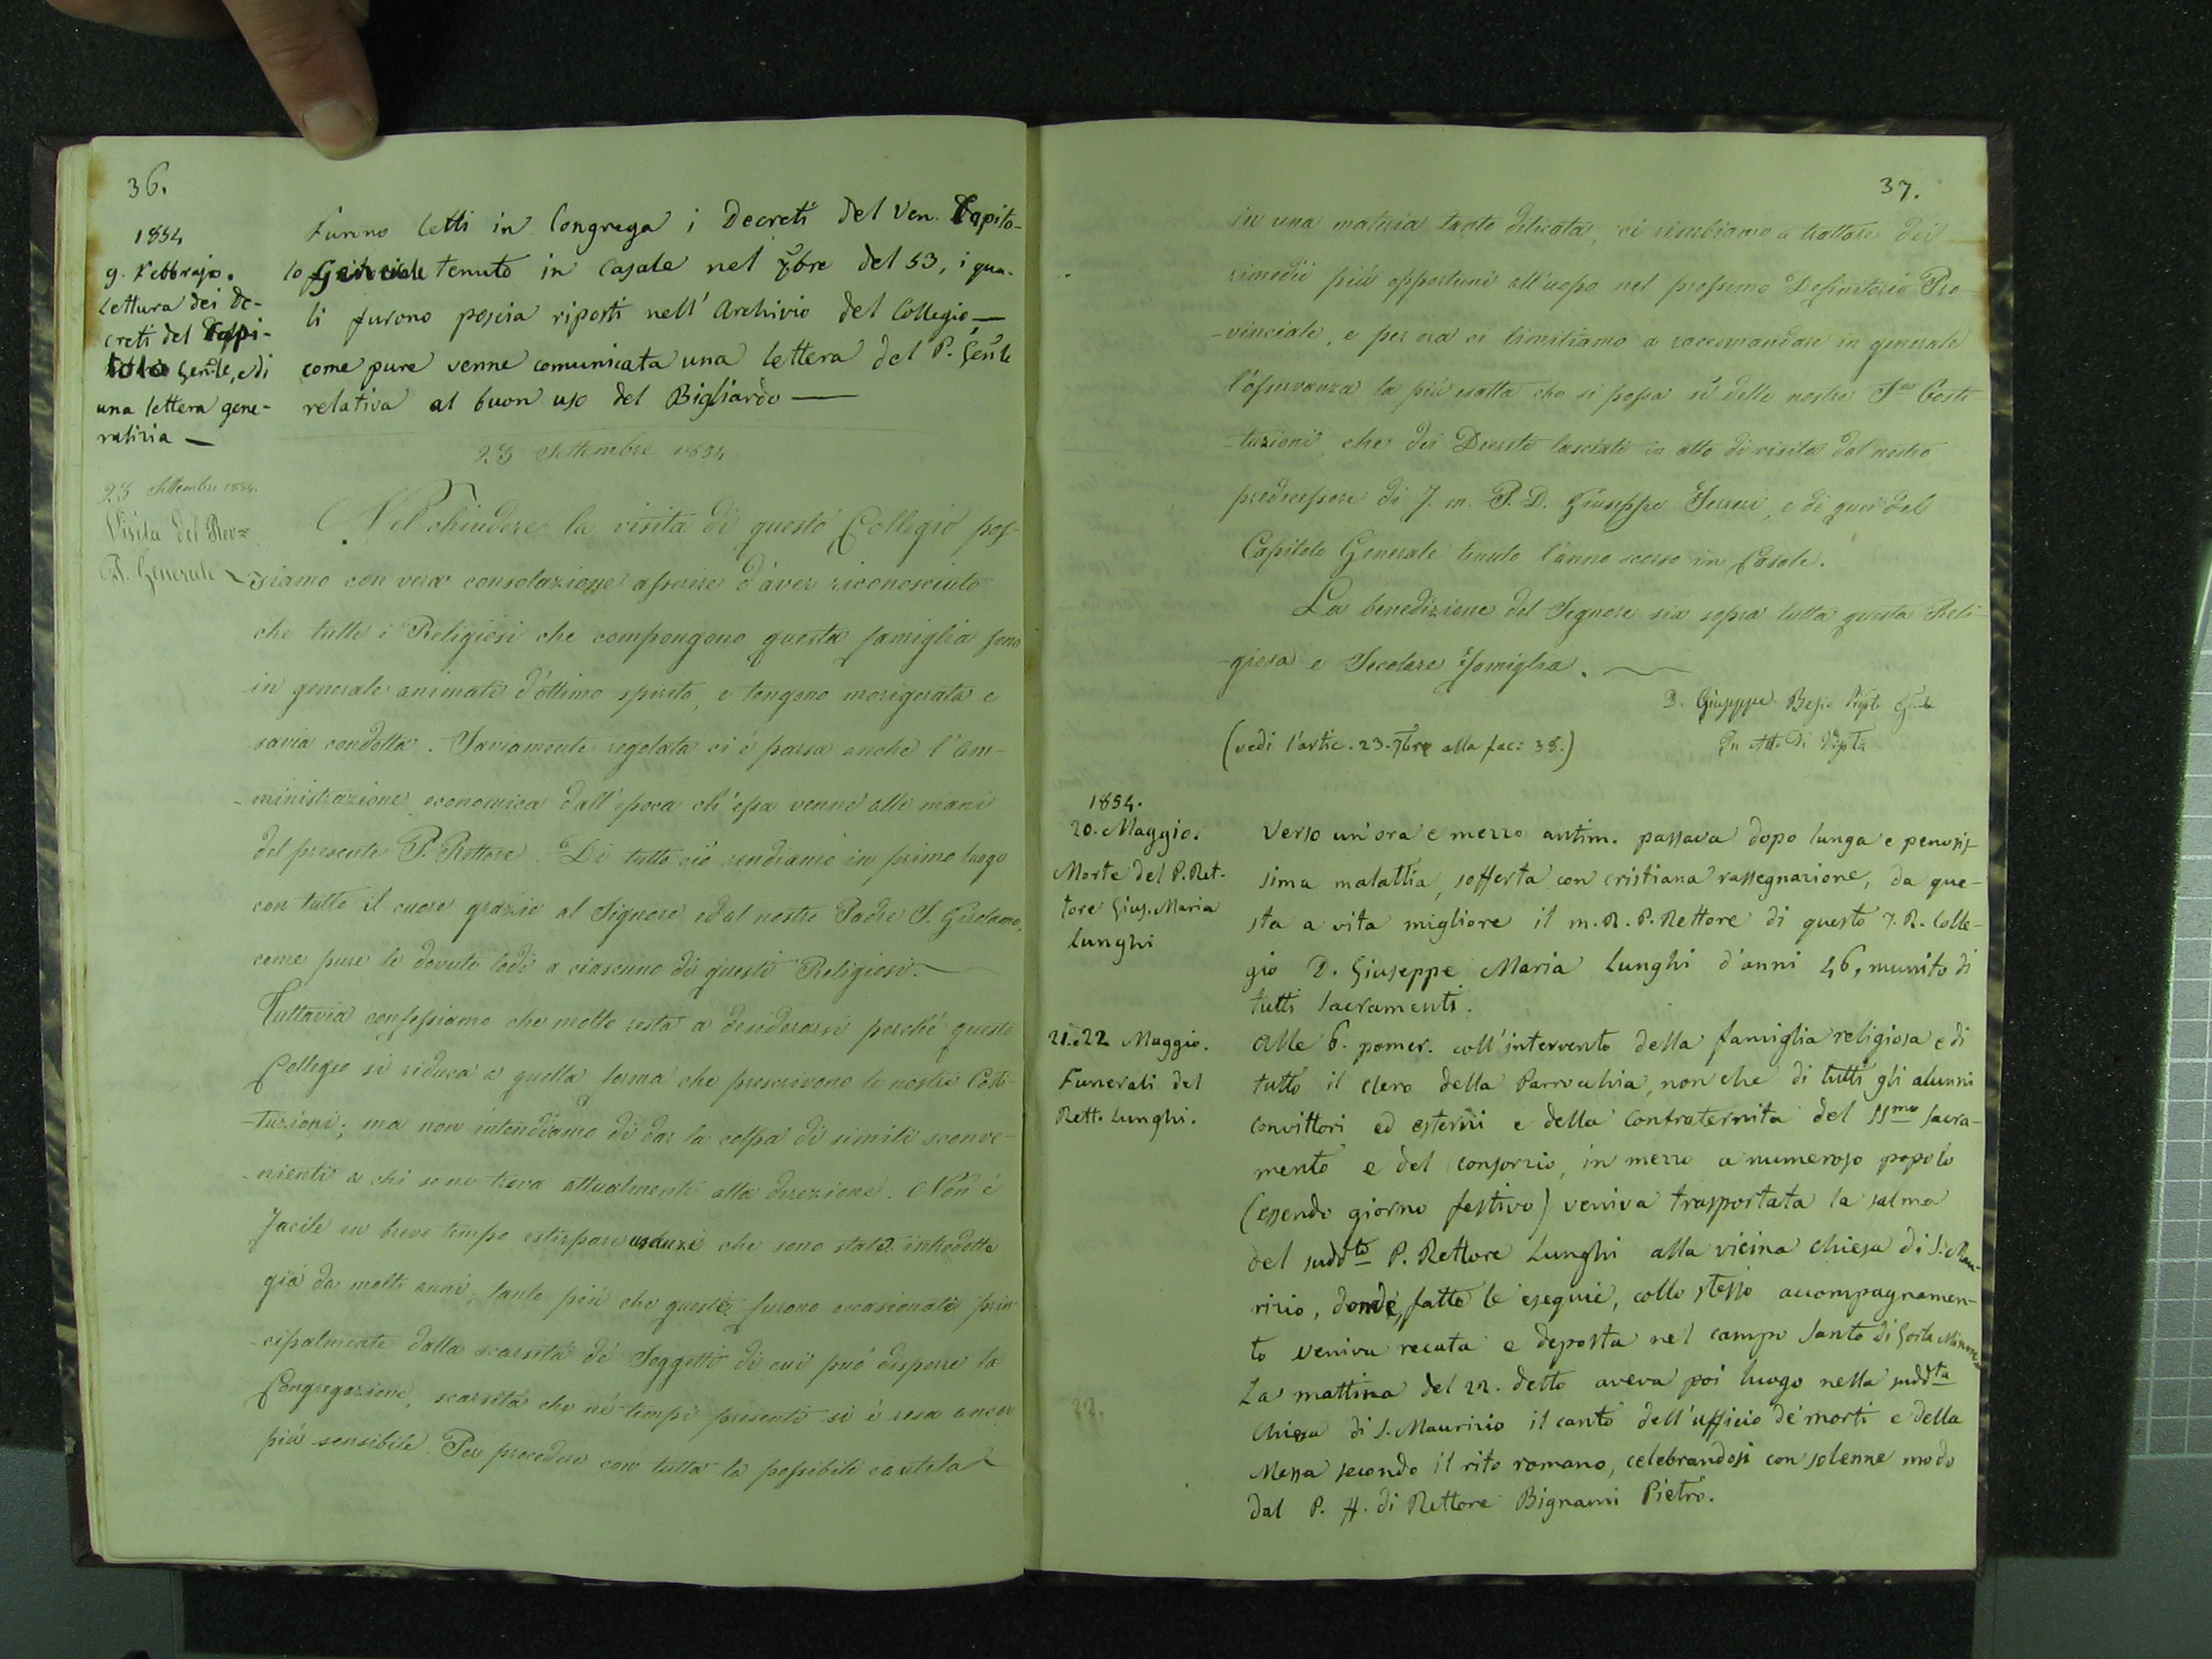 36.
1854
9. Febbrajo.
Lettura dei De-
creti del Capi-
tolo Genle, e di
una lettera gene-
ralizia —
Furono letti in Congrega i Decreti del Ven. Capito-
lo Generale tenuto in Casale nel 7bre del 53, i qua-
li furono poscia riposti nell'Archivio del Collegio, —
come pure venne comunicata una lettera del P. Genle
relativa al buon uso del Bigliardo —
23 Settembre 1854
23 Settembre 1854.
Visita del Rev=
P. Generale
Nel chiudere la visita di questo Collegio pos-
siamo con vera consolazione asserire d'aver riconosciuto
che tutti i Religiosi che compongono questa famiglia sono
in generale animati d'ottimo spirito, e tengono morigerata e
savia condotta. Saviamente regolata ci è parsa anche l'Am-
-ministrazione economica dall'epoca ch'essa venne alle mani
del presente P. Rettore. Di tutto ciò rendiamo in primo luogo
con tutto il cuore grazie al Signore ed al nostro Padre S. Girolamo,
come pure le dovute lodi a ciascuno di questi Religiosi. —
Tuttavia confessiamo che molto resta a desiderarsi perché questo
Collegio si riduca a quella forma che prescrivono le nostre Costi-
-tuzioni; ma non intendiamo di dar la colpa di simili sconve-
-nienti a chi se ne trova attualmente alla direzione. Non è
facile in breve tempo estirpare usanze che sono state introdotte
già da molti anni, tanto più che queste furono occasionate prin-
-cipalmente dalla scarsità de' Soggetti di cui può disporre la
Congregazione, scarsità che ne' tempi presenti si è resa ancor
più sensibile. Per procedere con tutta la possibile cautela
37.
in una materia tanto delicata, ci riserbiamo a trattare dei
rimedii più opportuni all'uopo nel prossimo Definitorio Pro-
-vinciale, e per ora ci limitiamo a raccomandare in generale
l'osservanza la più esatta che si possa sì delle nostre Ste Costi-
-tuzioni, che dei Decreti lasciati in atto di visita dal nostro
predecessore di f. m. P. D. Giuseppe Ferreri, e di quei del
Capitolo Generale tenuto l'anno scorso in Casale.
La benedizione del Signore sia sopra tutta questa Reli-
-giosa e Secolare famiglia. —
D. Giuseppe Besio Prepto Genle
In Atto di Visita
(vedi l'artic. 23. 7bre alla fac: 38.)
1854.
20. Maggio.
Morte del P. Ret-
tore Gius. Maria
Lunghi
Verso un'ora e mezzo antim. passava dopo lunga e penosis-
sima malattia, sofferta con cristiana rassegnazione, da que-
sta a vita migliore il m. R. P. Rettore di questo I. R. Colle-
gio D. Giuseppe Maria Lunghi d'anni 46, munito di
tutti Sacramenti.
21. e 22 Maggio.
Funerali del
Rett. Lunghi.
Alle 6. pomer. coll'intervento della famiglia religiosa e di
tutto il clero della Parrocchia, nonche di tutti gli alunni
convittori ed esterni e della Confraternita del SSmo Sacra-
mento e del consorzio, in mezzo a numeroso popolo
(essendo giorno festivo) veniva trasportata la salma
del suddto P. Rettore Lunghi alla vicina chiesa di S. Mau-
rizio, donde, fatte le esequie, collo stesso accompagnamen-
to veniva recata e deposta nel campo Santo di Gorla Minore
La mattina del 22. detto aveva poi luogo nella suddta
Chiesa di S. Maurizio il canto dell'ufficio de' morti e della
Messa secondo il rito romano, celebrandosi con solenne modo
dal P. ff. di Rettore Bignami Pietro.